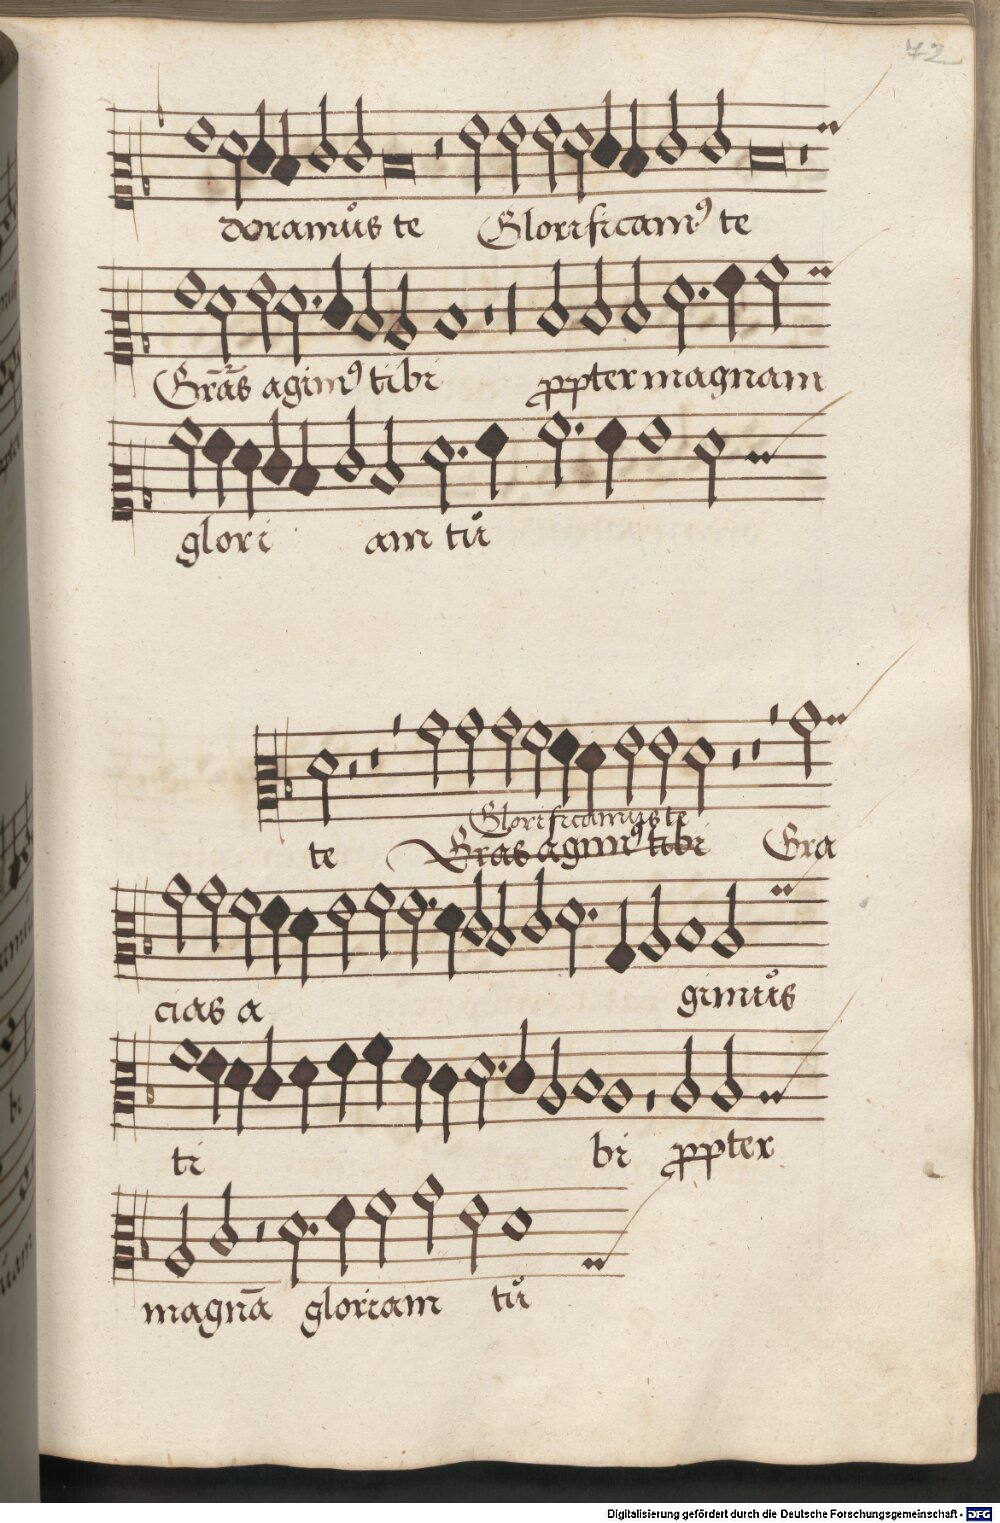 72
doramůs te Glorificamꝰ te
Grãs agimꝰ tibi propter magnam
glori am tů
te Glorificamus te
Gras agimꝰ tibi Gra
cias a gimůs
ti bi propter
magnã gloriam tů
Digitalisierung gefördert durch die Deutsche Forschungsgemeinschaft - DFG